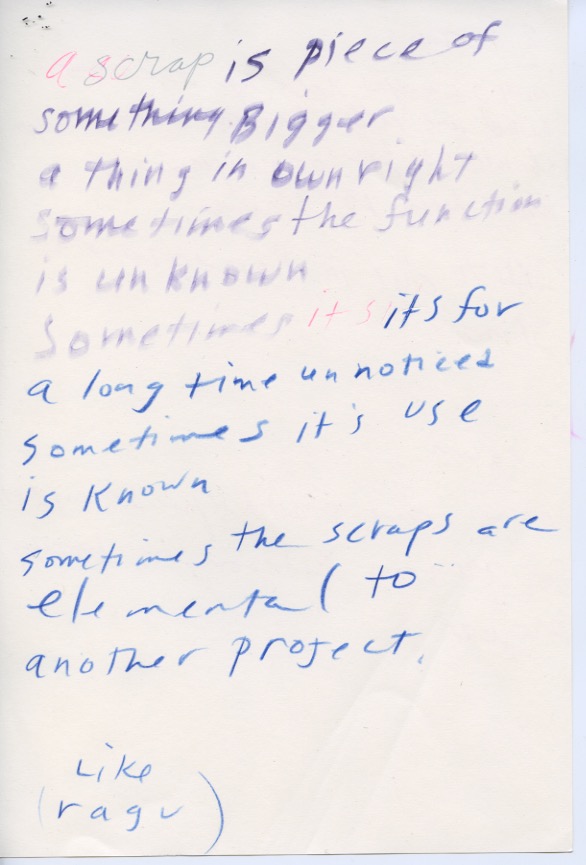 a scrap is piece of
something Bigger
a thing in own right
sometimes the function
is unknown
Sometimes it's its for
a long time unnoticed
sometimes it's use
is known
sometimes the scraps are
elemental to
another project.
Like
(ragu)